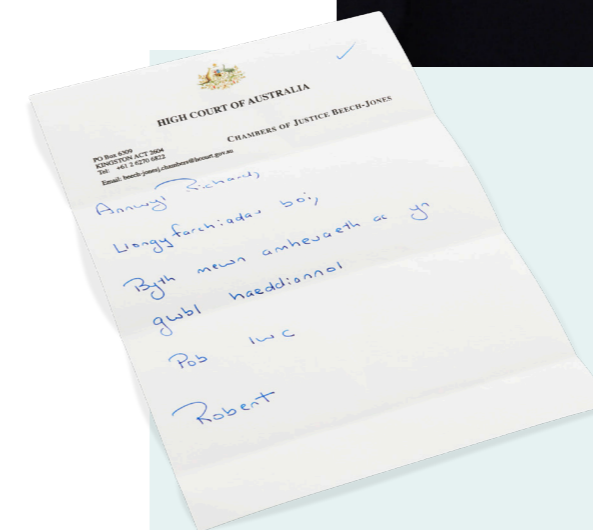 HIGH COURT OF AUSTRALIA
CHAMBERS OF JUSTICE BEECH-JONES
PO Box 6309
KINGSTON ACT 2604
Tel: +61 2 6270 6822
Email: beech-jonesj.chambers@hcourt.gov.au
Annwyl Richard,
Llongyfarchiadau boi,
Byth mewn amheuaeth ac yn
gwbl haeddiannol
Pob lwc
Robert